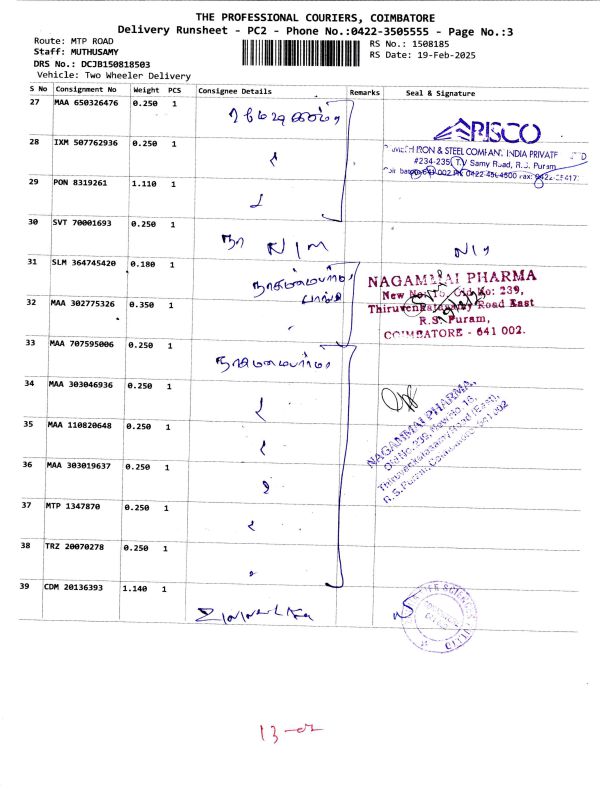 THE PROFESSIONAL COURIERS, COIMBATORE
Delivery Runsheet - PC2 - Phone No.:0422-3505555 - Page No.:3
Route: MTP ROAD
RS No.: 1508185
Staff: MUTHUSAMY
RS Date: 19-Feb-2025
DRS No.: DCJB150818503
Vehicle: Two Wheeler Delivery
S No Consignment No Weight PCS Consignee Details Remarks Seal & Signature
27 MAA 650326476 0.250 1
ARISCO
28 IXM 507762936 0.250 1
IRON & STEEL COMPANY INDIA PRIVATE
#234-235, T.V Samy Road, R.S. Puram
29 PON 8319261 1.110 1
30 SVT 70001693 0.250 1
31 SLM 364745420 0.180 1
NAGAMMAI PHARMA
New No: 16, Old No: 239,
32 MAA 302775326 0.350 1
Thiruvenkatasamy Road East
R.S. Puram,
COIMBATORE - 641 002.
33 MAA 707595006 0.250 1
34 MAA 303046936 0.250 1
NAGAMMAI PHARMA,
Old No. 239, New No. 16,
Thiruvenkatasamy Road (East),
R.S. Puram, Coimbatore-641 002
35 MAA 110820648 0.250 1
36 MAA 303019637 0.250 1
37 MTP 1347870 0.250 1
38 TRZ 20070278 0.250 1
39 CDM 20136393 1.140 1